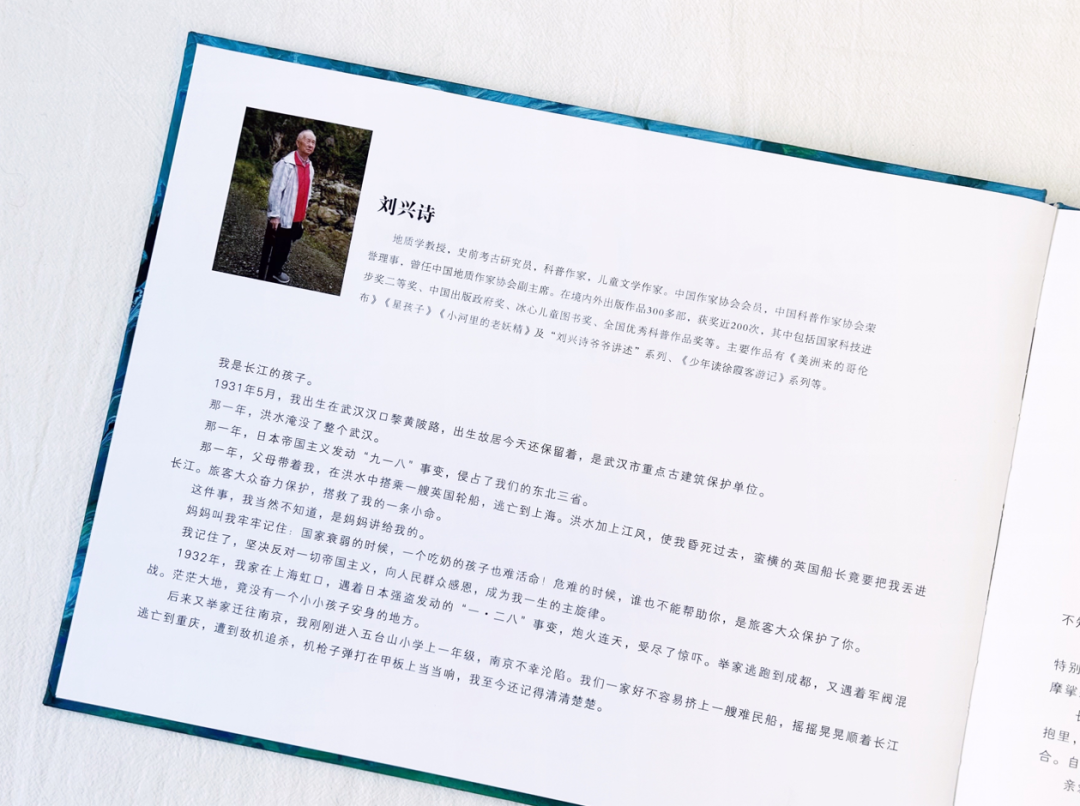 刘兴诗
地质学教授，史前考古研究员，科普作家，儿童文学作家。中国作家协会会员，中国科普作家协会荣
誉理事，曾任中国地质作家协会副主席。在境内外出版作品300多部，获奖近200次，其中包括国家科技进
步奖二等奖、中国出版政府奖、冰心儿童图书奖、全国优秀科普作品奖等。主要作品有《美洲来的哥伦
布》《星孩子》《小河里的老妖精》及“刘兴诗爷爷讲述”系列、《少年读徐霞客游记》系列等。
我是长江的孩子。
1931年5月，我出生在武汉汉口黎黄陂路，出生故居今天还保留着，是武汉市重点古建筑保护单位。
那一年，洪水淹没了整个武汉。
那一年，日本帝国主义发动“九一八”事变，侵占了我们的东北三省。
那一年，父母带着我，在洪水中搭乘一艘英国轮船，逃亡到上海。洪水加上江风，使我昏死过去，蛮横的英国船长竟要把我丢进
长江。旅客大众奋力保护，搭救了我的一条小命。
这件事，我当然不知道，是妈妈讲给我的。
妈妈叫我牢牢记住：国家衰弱的时候，一个吃奶的孩子也难活命！危难的时候，谁也不能帮助你，是旅客大众保护了你。
我记住了，坚决反对一切帝国主义，向人民群众感恩，成为我一生的主旋律。
1932年，我家在上海虹口，遇着日本强盗发动的“一·二八”事变，炮火连天，受尽了惊吓。举家逃跑到成都，又遇着军阀混
战。茫茫大地，竟没有一个小小孩子安身的地方。
后来又举家迁往南京，我刚刚进入五台山小学上一年级，南京不幸沦陷。我们一家好不容易挤上一艘难民船，摇摇晃晃顺着长江
逃亡到重庆，遭到敌机追杀，机枪子弹打在甲板上当当响，我至今还记得清清楚楚。
特别
抱里，
合。自